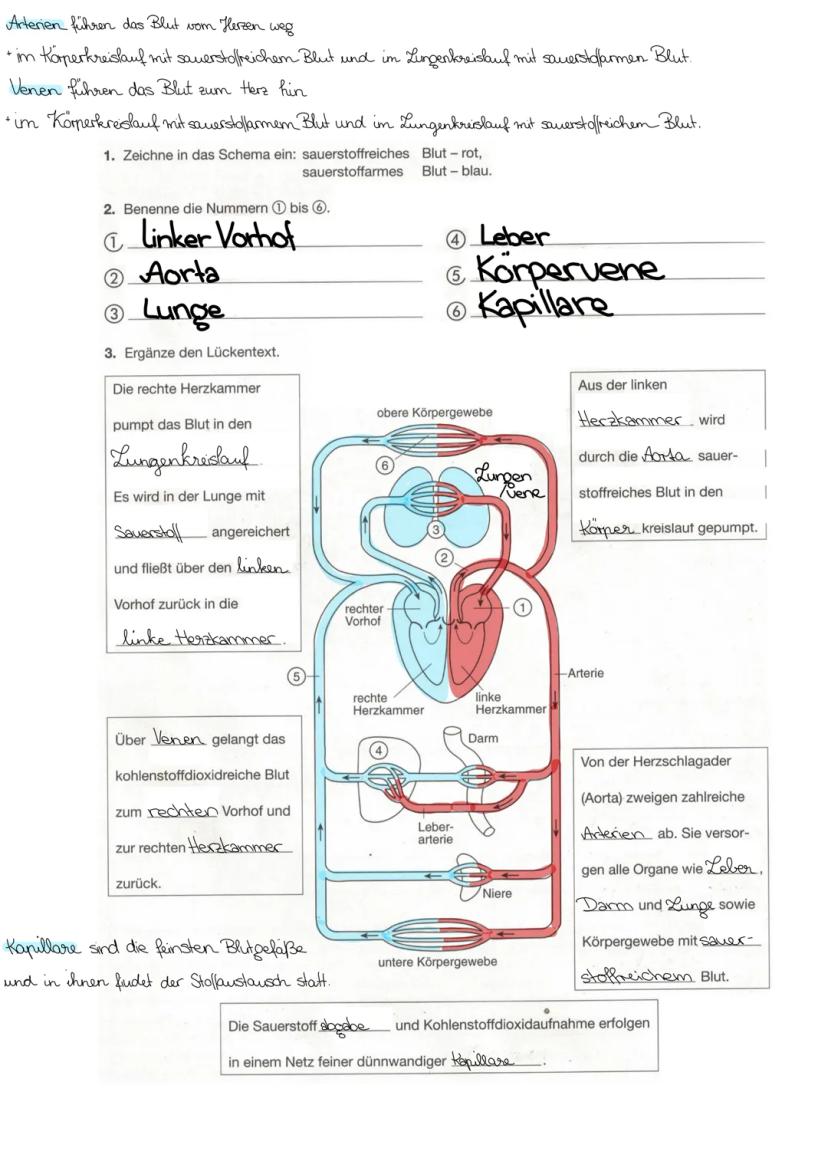 Arterien führen das Blut vom Herzen weg
+ im Körperkreislauf mit sauerstoffreichem Blut und im Lungenkreislauf mit sauerstoffarmen Blut.
Venen führen das Blut zum Herz hin
+ im Körperkreislauf mit sauerstoffarmem Blut und im Lungenkreislauf mit sauerstoffreichem Blut.
1. Zeichne in das Schema ein: sauerstoffreiches Blut – rot,
sauerstoffarmes Blut – blau.
2. Benenne die Nummern ① bis ⑥.
① linker Vorhof
② Aorta
③ Lunge
④ Leber
⑤ Körpervene
⑥ Kapillare
3. Ergänze den Lückentext.
Die rechte Herzkammer
pumpt das Blut in den
Lungenkreislauf
Es wird in der Lunge mit
Sauerstoff angereichert
und fließt über den linken
Vorhof zurück in die
linke Herzkammer.
obere Körpergewebe
⑥
Lungen
vene
③
②
rechter
Vorhof
①
⑤
Arterie
rechte
Herzkammer
linke
Herzkammer
Aus der linken
Herzkammer wird
durch die Aorta sauer-
stoffreiches Blut in den
Körper kreislauf gepumpt.
Über Venen gelangt das
kohlenstoffdioxidreiche Blut
zum rechten Vorhof und
zur rechten Herzkammer
zurück.
④
Darm
Leber-
arterie
Niere
untere Körpergewebe
Von der Herzschlagader
(Aorta) zweigen zahlreiche
Arterien ab. Sie versor-
gen alle Organe wie Leber,
Darm und Lunge sowie
Körpergewebe mit sauer-
stoffreichem Blut.
Kapillare sind die feinsten Blutgefäße
und in ihnen findet der Stoffaustausch statt.
Die Sauerstoff abgabe und Kohlenstoffdioxidaufnahme erfolgen
in einem Netz feiner dünnwandiger Kapillare.